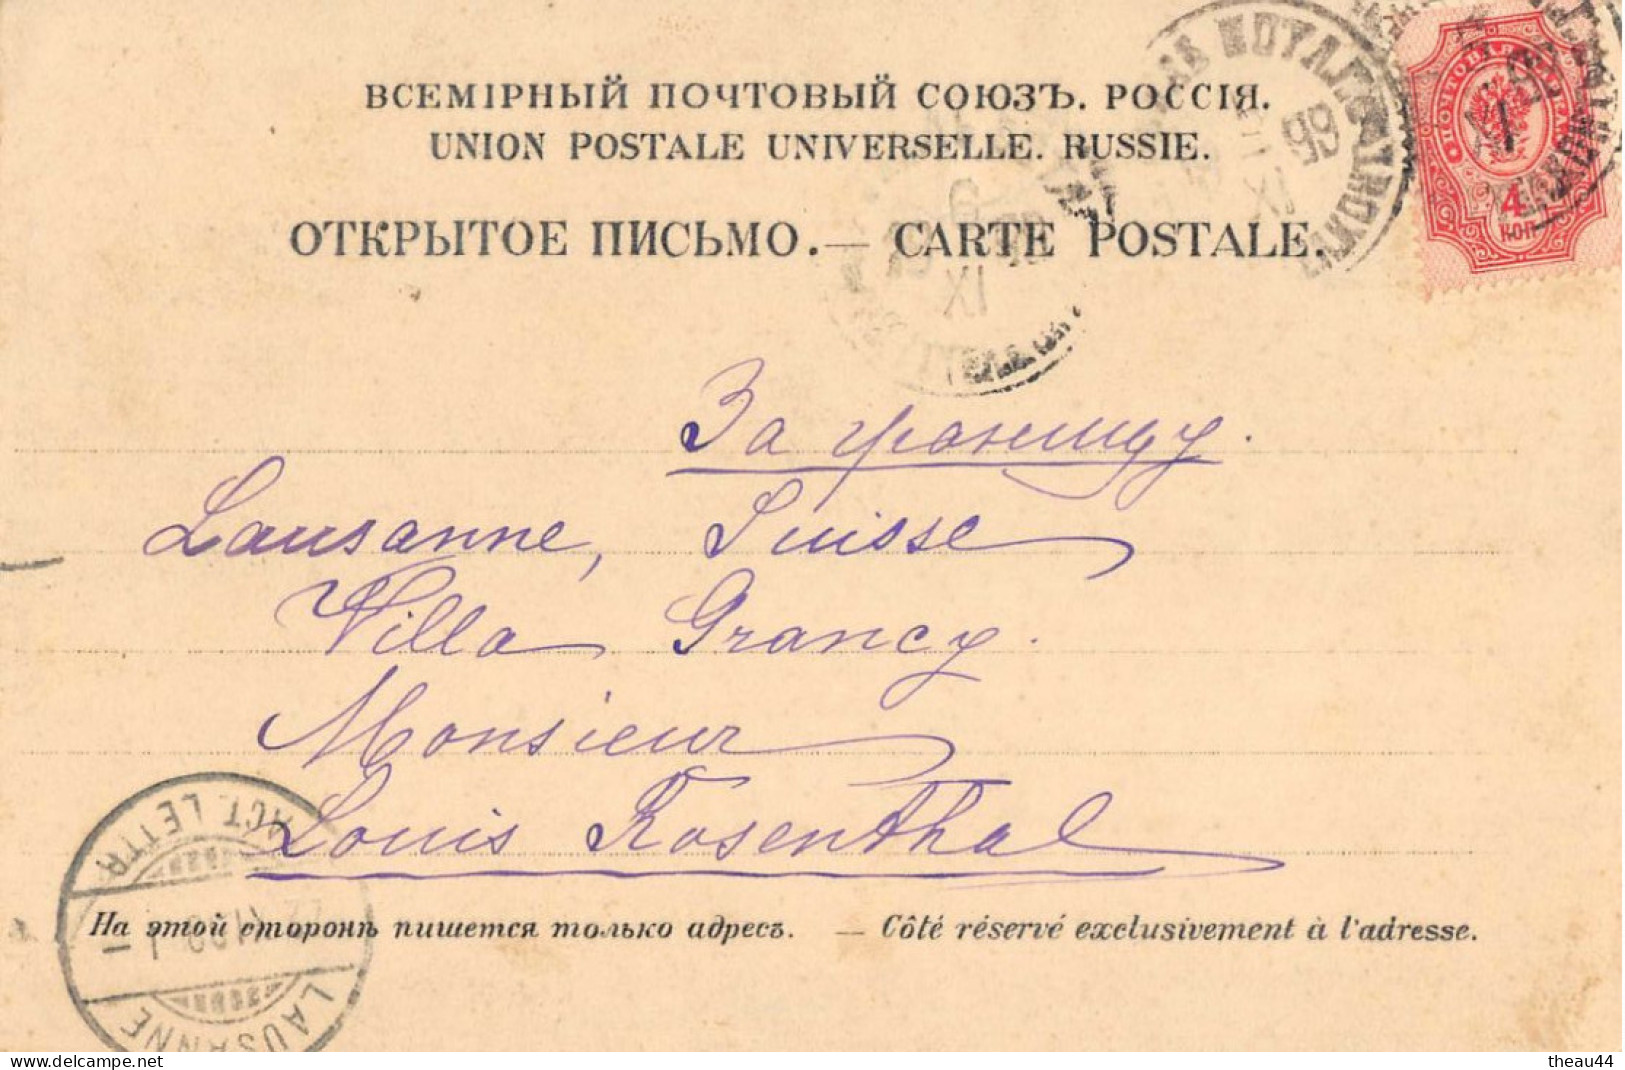 ВСЕМІРНЫЙ ПОЧТОВЫЙ СОЮЗЪ. РОССІЯ.
UNION POSTALE UNIVERSELLE. RUSSIE.
ОТКРЫТОЕ ПИСЬМО.— CARTE POSTALE.
99
IX
4
КОП
6
XI
За границу.
Lausanne, Suisse
Villa Grancy.
Monsieur
Louis Rosenthal
LETTR
LAUSANNE
На этой сторонѣ пишется только адресъ. — Côté réservé exclusivement à l'adresse.
www.delcampe.net
theau44